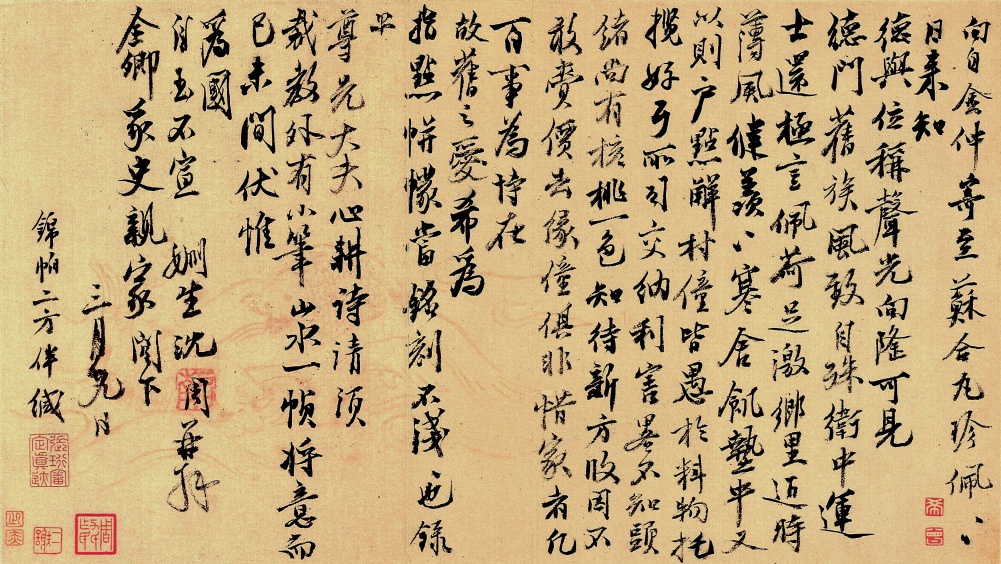 向自金仲寄至蘇合丸珍佩〻
日來知
德與位稱聲光向隆可見
德門舊族風致自殊衛中運
士還極言佩荷足激鄉里迺時
薄風健羨〻寒舍飢塾中又
以則戶點解村僮皆愚於料物托
攬好歹所司交納利害略不知頭
緒尚有核桃一色知待新方收因不
敢賣價去緣僮俱非惜家者凡
百事為恃在
故舊之愛希為
指點帡幪當銘刻不淺也錄
上
尊先大夫心耕詩請須
裁教外有小筆山水一幀將意而
已未間伏惟
為國
自玉不宣 姻生沈周再拜
全卿豸史親家閣下
三月九日
錦帕二方伴緘